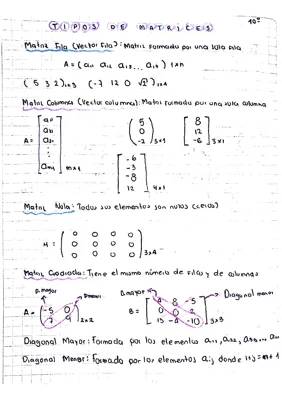 TIPOS DE MATRICES
Matriz Fila (Vector Fila): Matriz formado por una sola fila
A = (a₁₁ a₁₂ a₁₃ ... a₁ₙ) 1xn
(5 3 2)1x3 (-7 12 0 √2)1x4
Matriz Columna (Vector columna): Matriz formada por una sola columna
A = [a₁₁ a₂₁ a₃₁ ⋮ aₘ₁] mx1
(5 0 -2)3x1 [8 12 -6]3x1
[-6 -3 -8 12]4x1
Matriz Nula: Todos sus elementos son nulos (ceros)
M = (0 0 0 0
0 0 0 0
0 0 0 0)3x4
Matriz Cuadrada: Tiene el mismo número de filas y de columnas
D. mayor D. mayor Diagonal menor
A = (-5 0
7 9)2x2
B = [4 8 -5
0 0 2
13 -4 -10]3x3
Diagonal Mayor: Formada por los elementos a₁₁, a₂₂, a₃₃...
Diagonal Menor: Formada por los elementos aᵢⱼ donde i+j=n+1